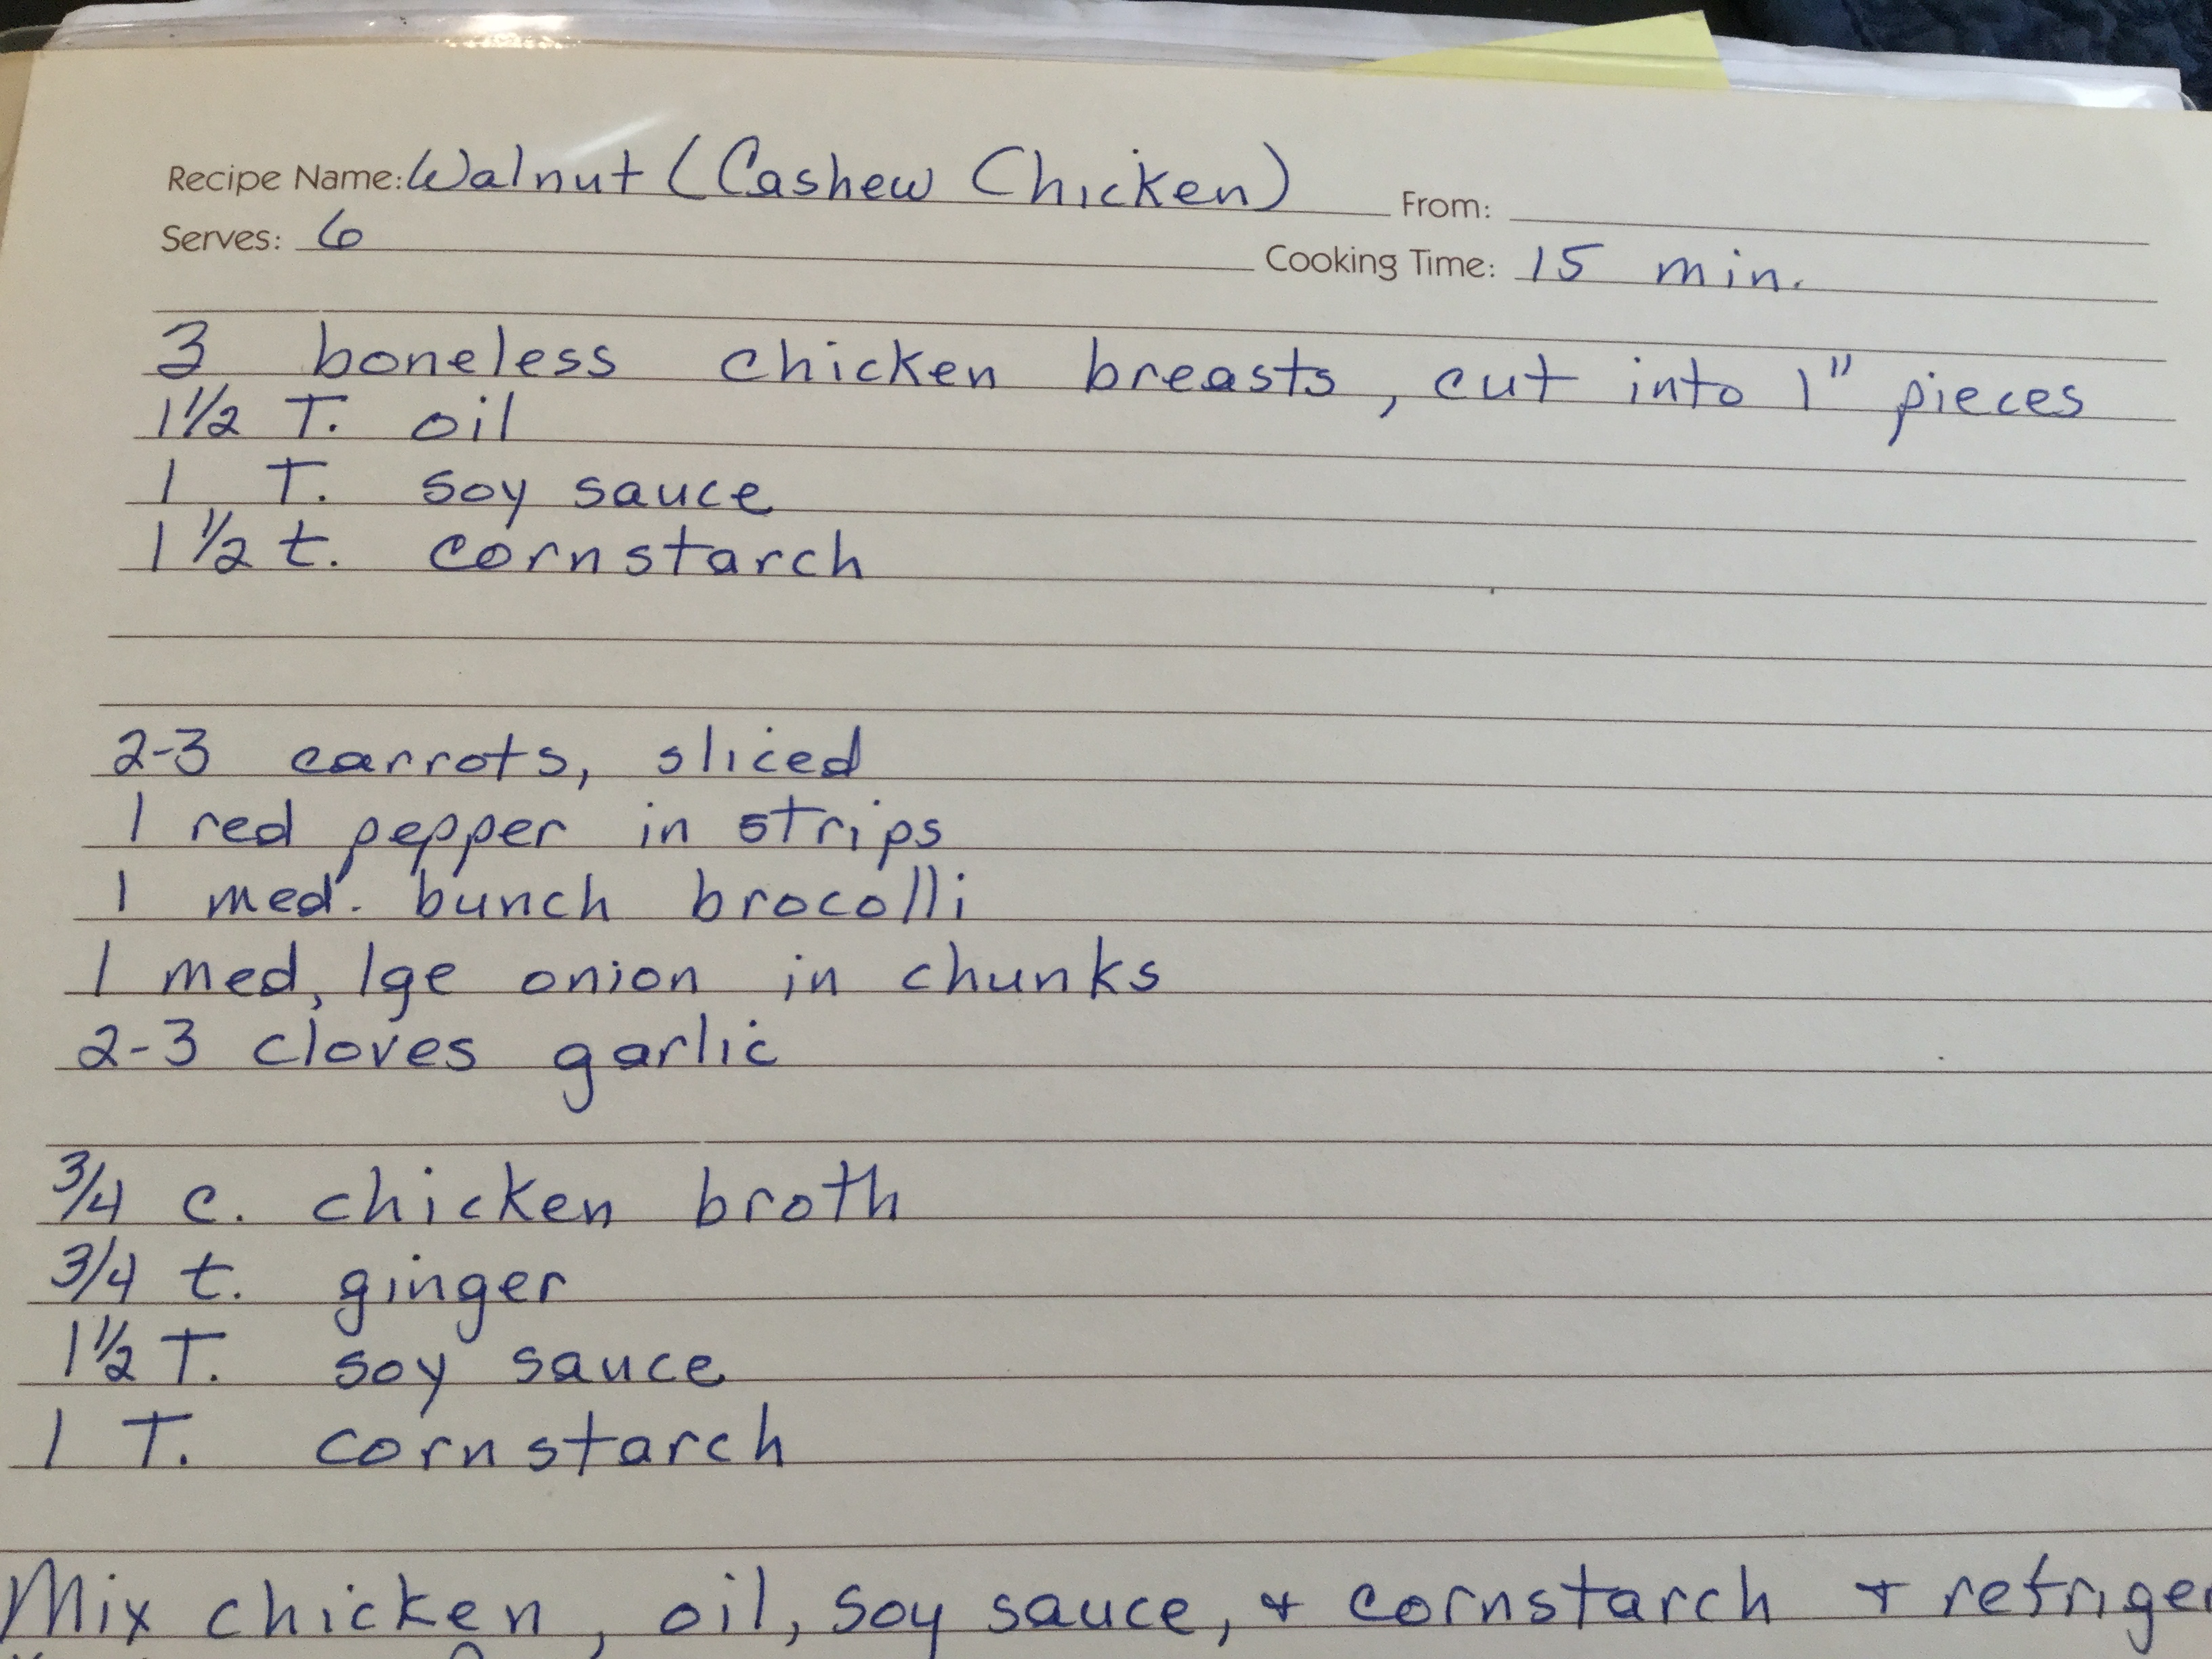 Recipe Name: Walnut (Cashew Chicken) From:
Serves: 6 Cooking Time: 15 min.
3 boneless chicken breasts, cut into 1" pieces
1 1/2 T. oil
1 T. soy sauce
1 1/2 t. cornstarch
2-3 carrots, sliced
1 red pepper in strips
1 med. bunch brocolli
1 med, lge onion in chunks
2-3 cloves garlic
3/4 c. chicken broth
3/4 t. ginger
1 1/2 T. soy sauce
1 T. cornstarch
Mix chicken, oil, soy sauce, + cornstarch + refriger